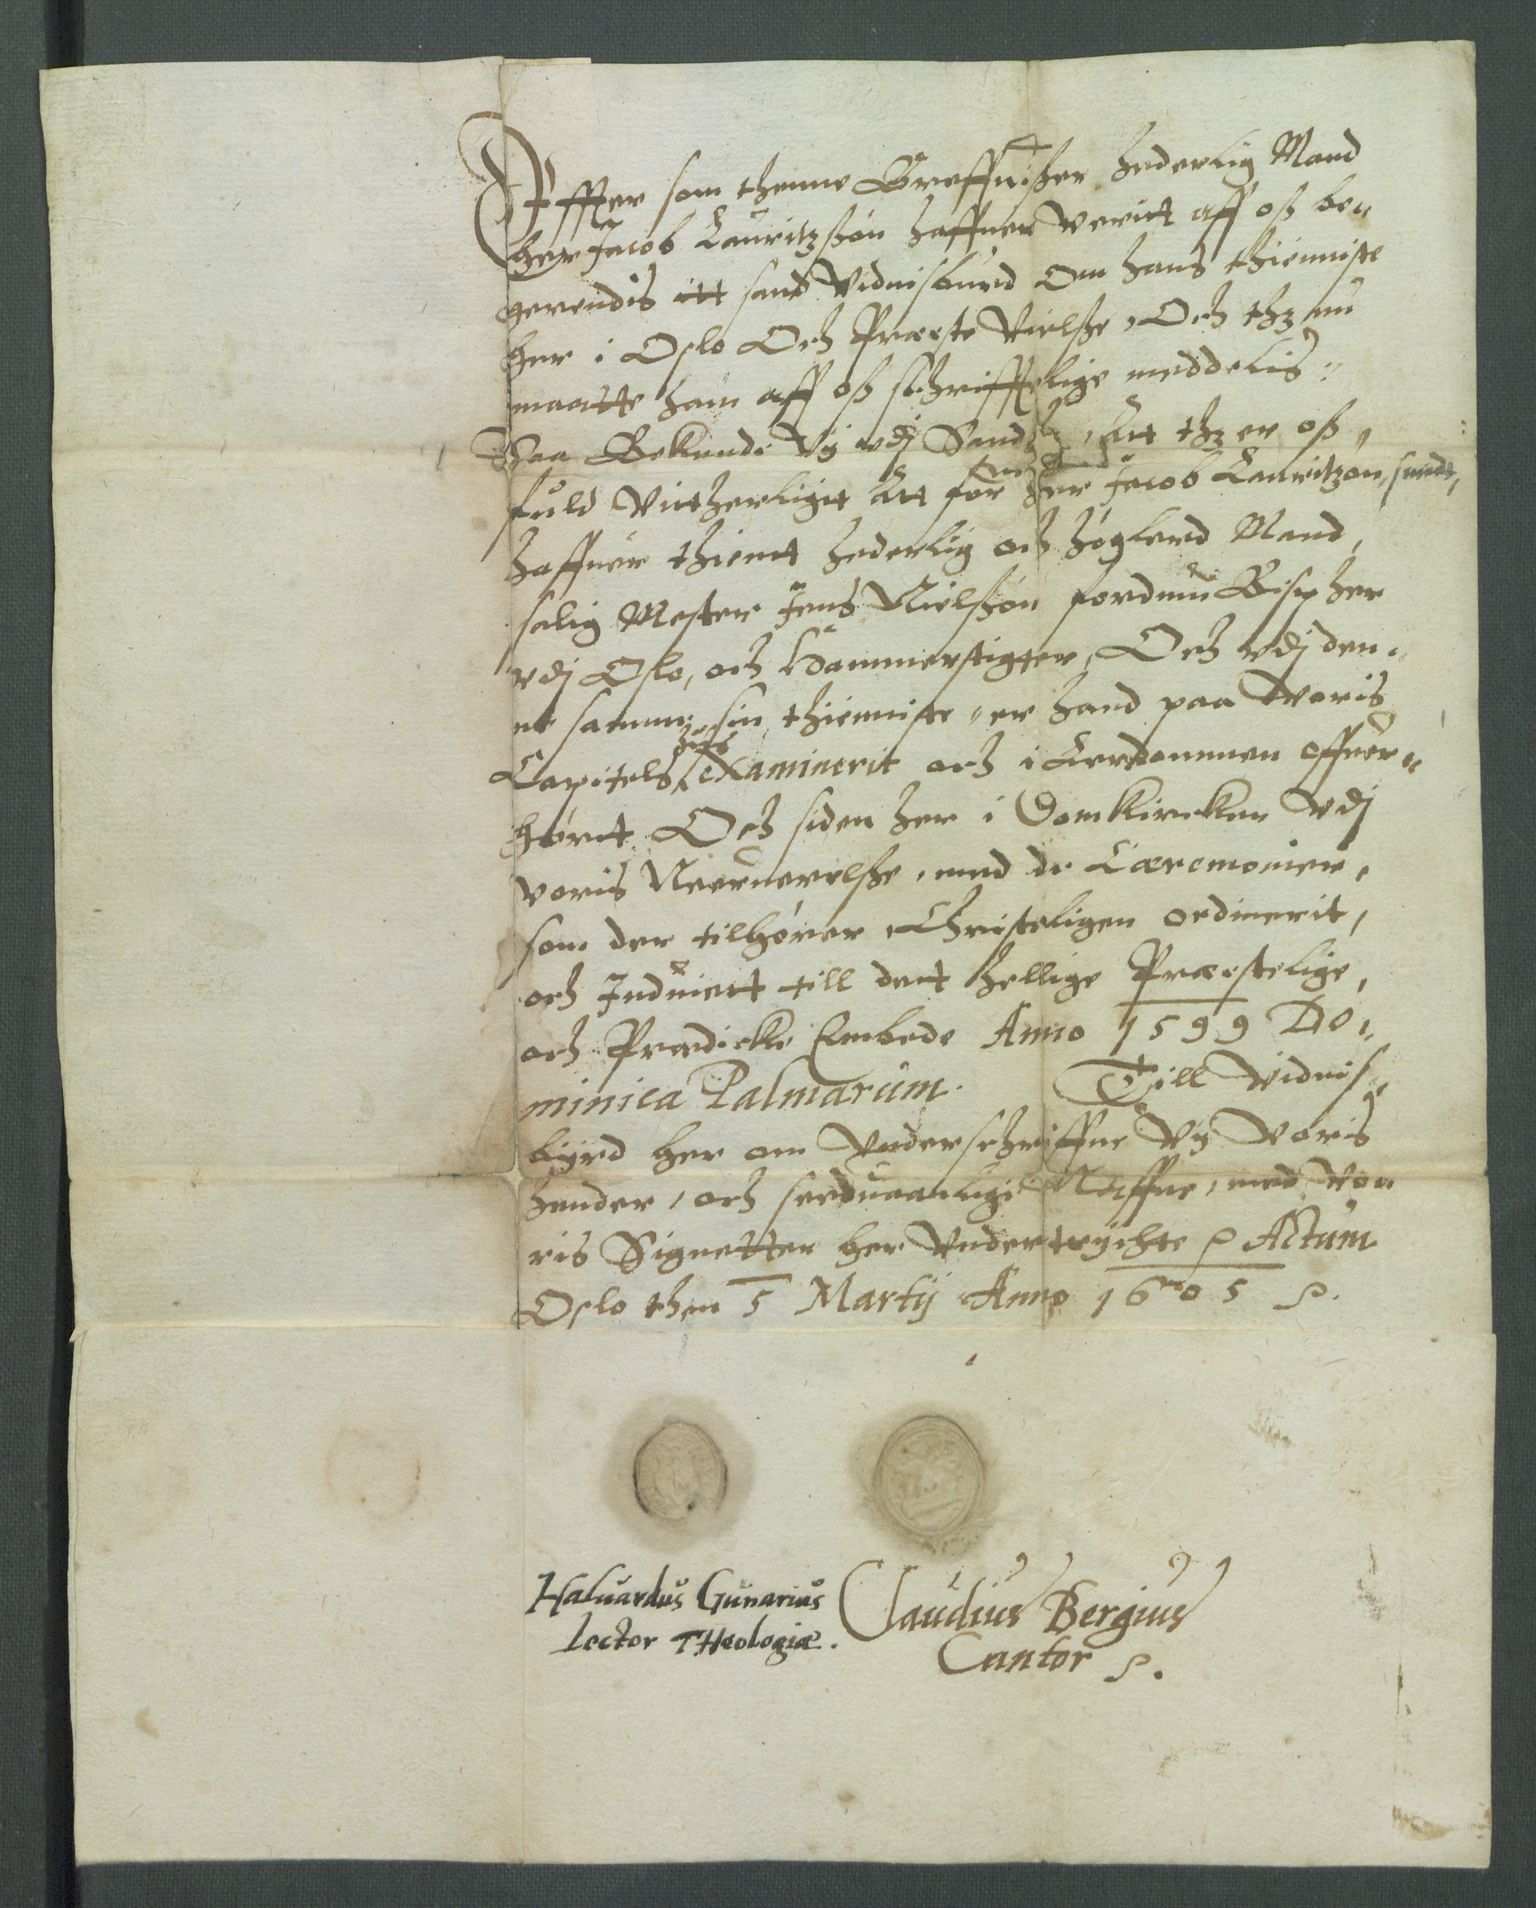 Effter som thenne Breffuißer hederlig Mand
her Jacob Lauritzßón haffuer verit aff oß be„
gerendis itt sand Vidnisburd Om hans thienniste
her i Oslo Och Præste Vielße, Och thz nu
maatte ham aff oß schrifftelige meddelis„
Thaa Bekiende Vy vdj Sandh: Att thz er oß,
fuld Vitherligtt Att for her Jacob Lauritzøn,
haffuer thientt hederlig och høglerd Mand,
salig Mester Jens Nielßón fordum Bisp her
vdj Oslo, och Hammerstigtter, Och vdj den„
ne samme sin thienniste, er hand paa Voris
Capitels huß examinerit och i Lerdommen offuer„
hørt. Och siden her i Domkircken Vdj
voris Neeruerelße, med de Cæremonier,
som der tilhører, Christeligen ordinerit,
och Induiett till dett hellige Præstelige,
och Prædicke Embede Anno 1599 Do„
minica Palmarum. Till Vidnis„
byrd her om Vnderschriffue Vy Voris
hender, och seeduaanlige Naffne, med Vo„
ris Signetter her Vndertrÿchte Actum
Oslo then 5 Martij Anno 1605
Haluardus Gunarius
Lector THeologiæ.
Claudius Bergius
Cantor